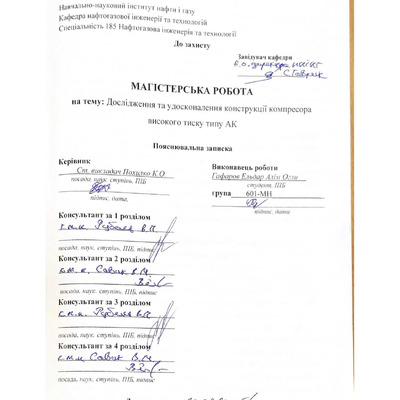 Навчально-науковий інститут нафти і газу
Кафедра нафтогазової інженерії та технологій
Спеціальність 185 Нафтогазова інженерія та технології
До захисту
Завідувач кафедри
МАГІСТЕРСЬКА РОБОТА
на тему: Дослідження та удосконалення конструкції компресора
високого тиску типу АК
Пояснювальна записка
Керівник
Ст. викладач Похилко К.О
посада, наук. ступінь, ПІБ
підпис, дата,
Виконавець роботи
Гафаров Ельдар Азін Огли
студент, ПІБ
група 601-МН
підпис, дата
Консультант за 1 розділом
посада, наук. ступінь, ПІБ, підпис
Консультант за 2 розділом
к.т.н. Савик В.М.
посада, наук. ступінь, ПІБ, підпис
Консультант за 3 розділом
посада, наук. ступінь, ПІБ, підпис
Консультант за 4 розділом
к.т.н. Савик В.М.
посада, наук. ступінь, ПІБ, підпис